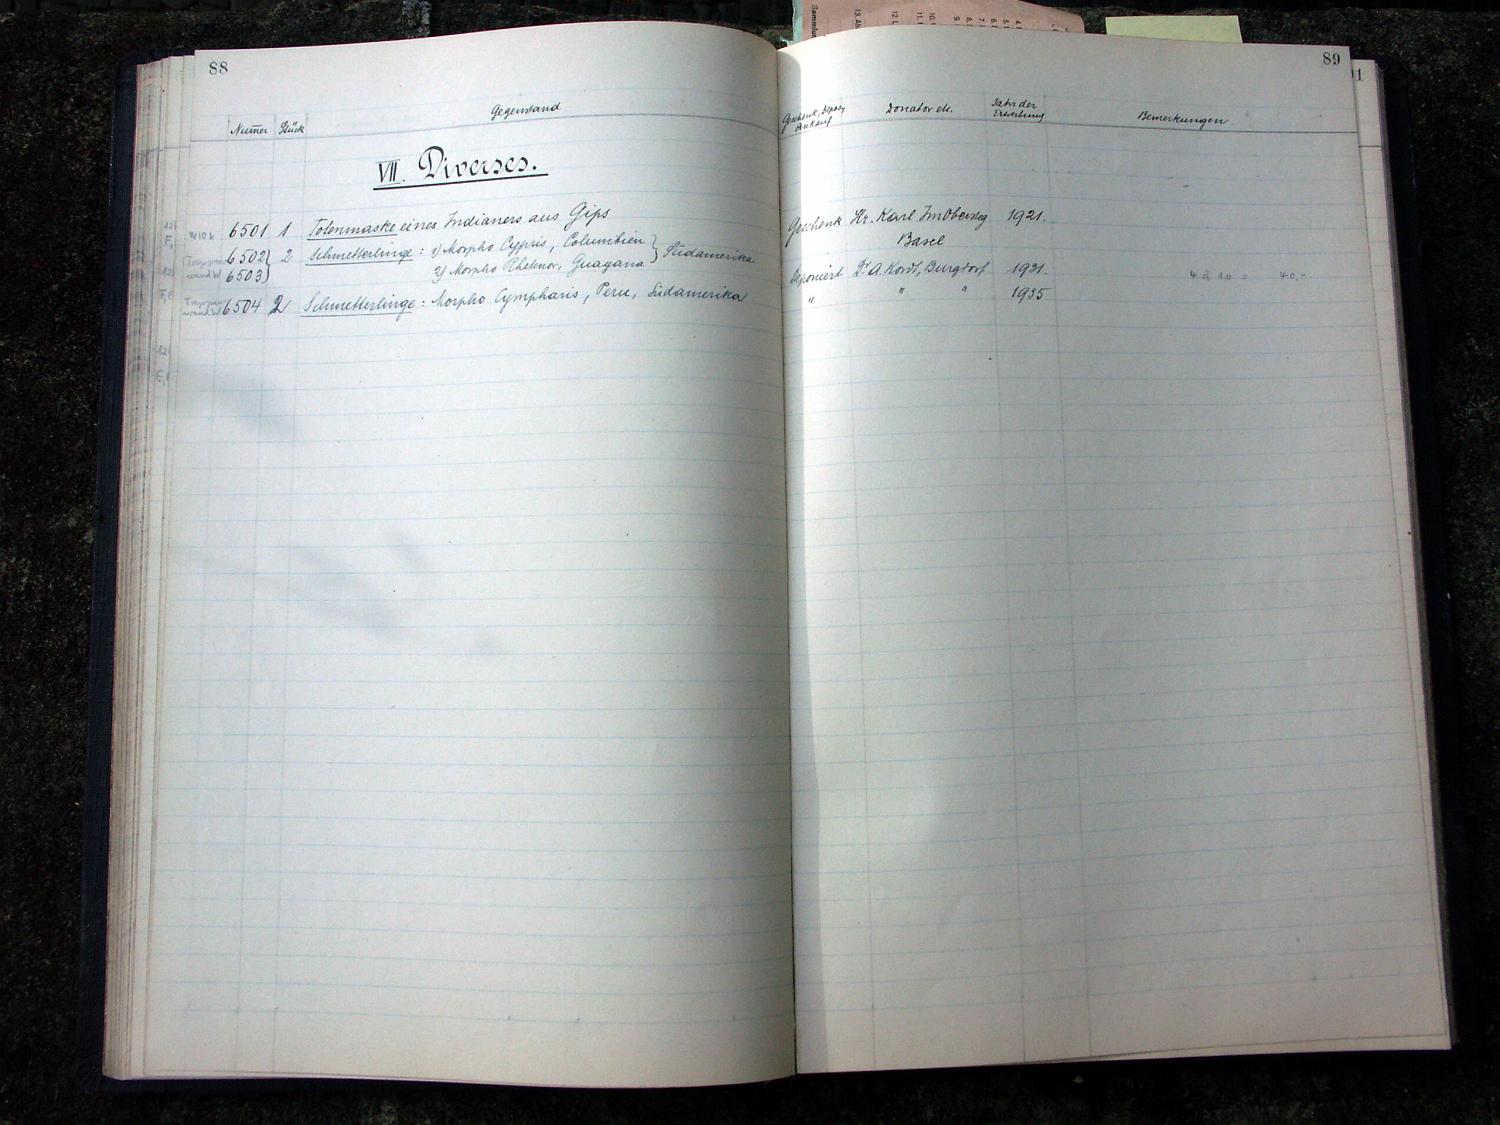 88
89
Numer Stück Gegenstand Geschenk, Depos, Ankauf Donator etc. Jahr der Erwerbung Bemerkungen
VII. Diverses.
6501 1 Totenmaske eines Indianers aus Gips Geschenk Hr. Karl ImObersteg 1921.
Basel
6502 2 Schmetterlinge: 1) Morpho Cypris, Columbien } Südamerika
6503 2) Morpho Rhetenor, Guayana deponiert Dr. A. Kordt, Burgdorf 1931. 4 à 10 = 40.-
6504 2 Schmetterlinge: Morpho Cympharis, Peru, Südamerika " " " 1935